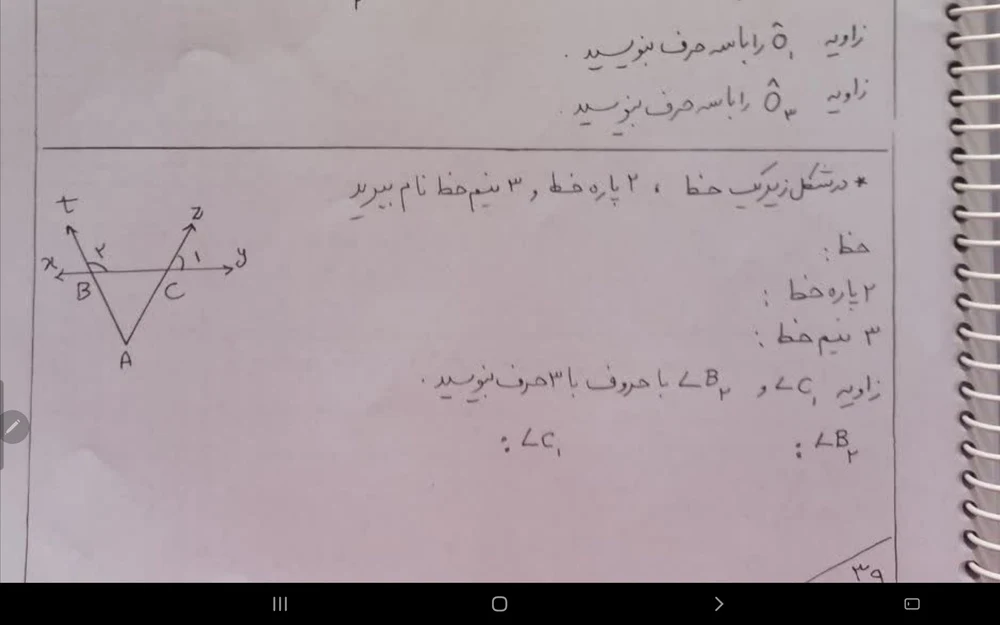 زاویه Ô۱ را با سه حرف بنویسید.
زاویه Ô۳ را با سه حرف بنویسید.
* در شکل زیر یک خط ، ۲ پاره خط و ۳ نیم خط نام ببرید
خط:
۲ پاره خط :
۳ نیم خط :
زاویه ∠C۱ و ∠B۲ با حروف با ۳ حرف بنویسید.
∠B۲ : ∠C۱ :
t z
x ۲ ۱ y
B C
A
۳۹